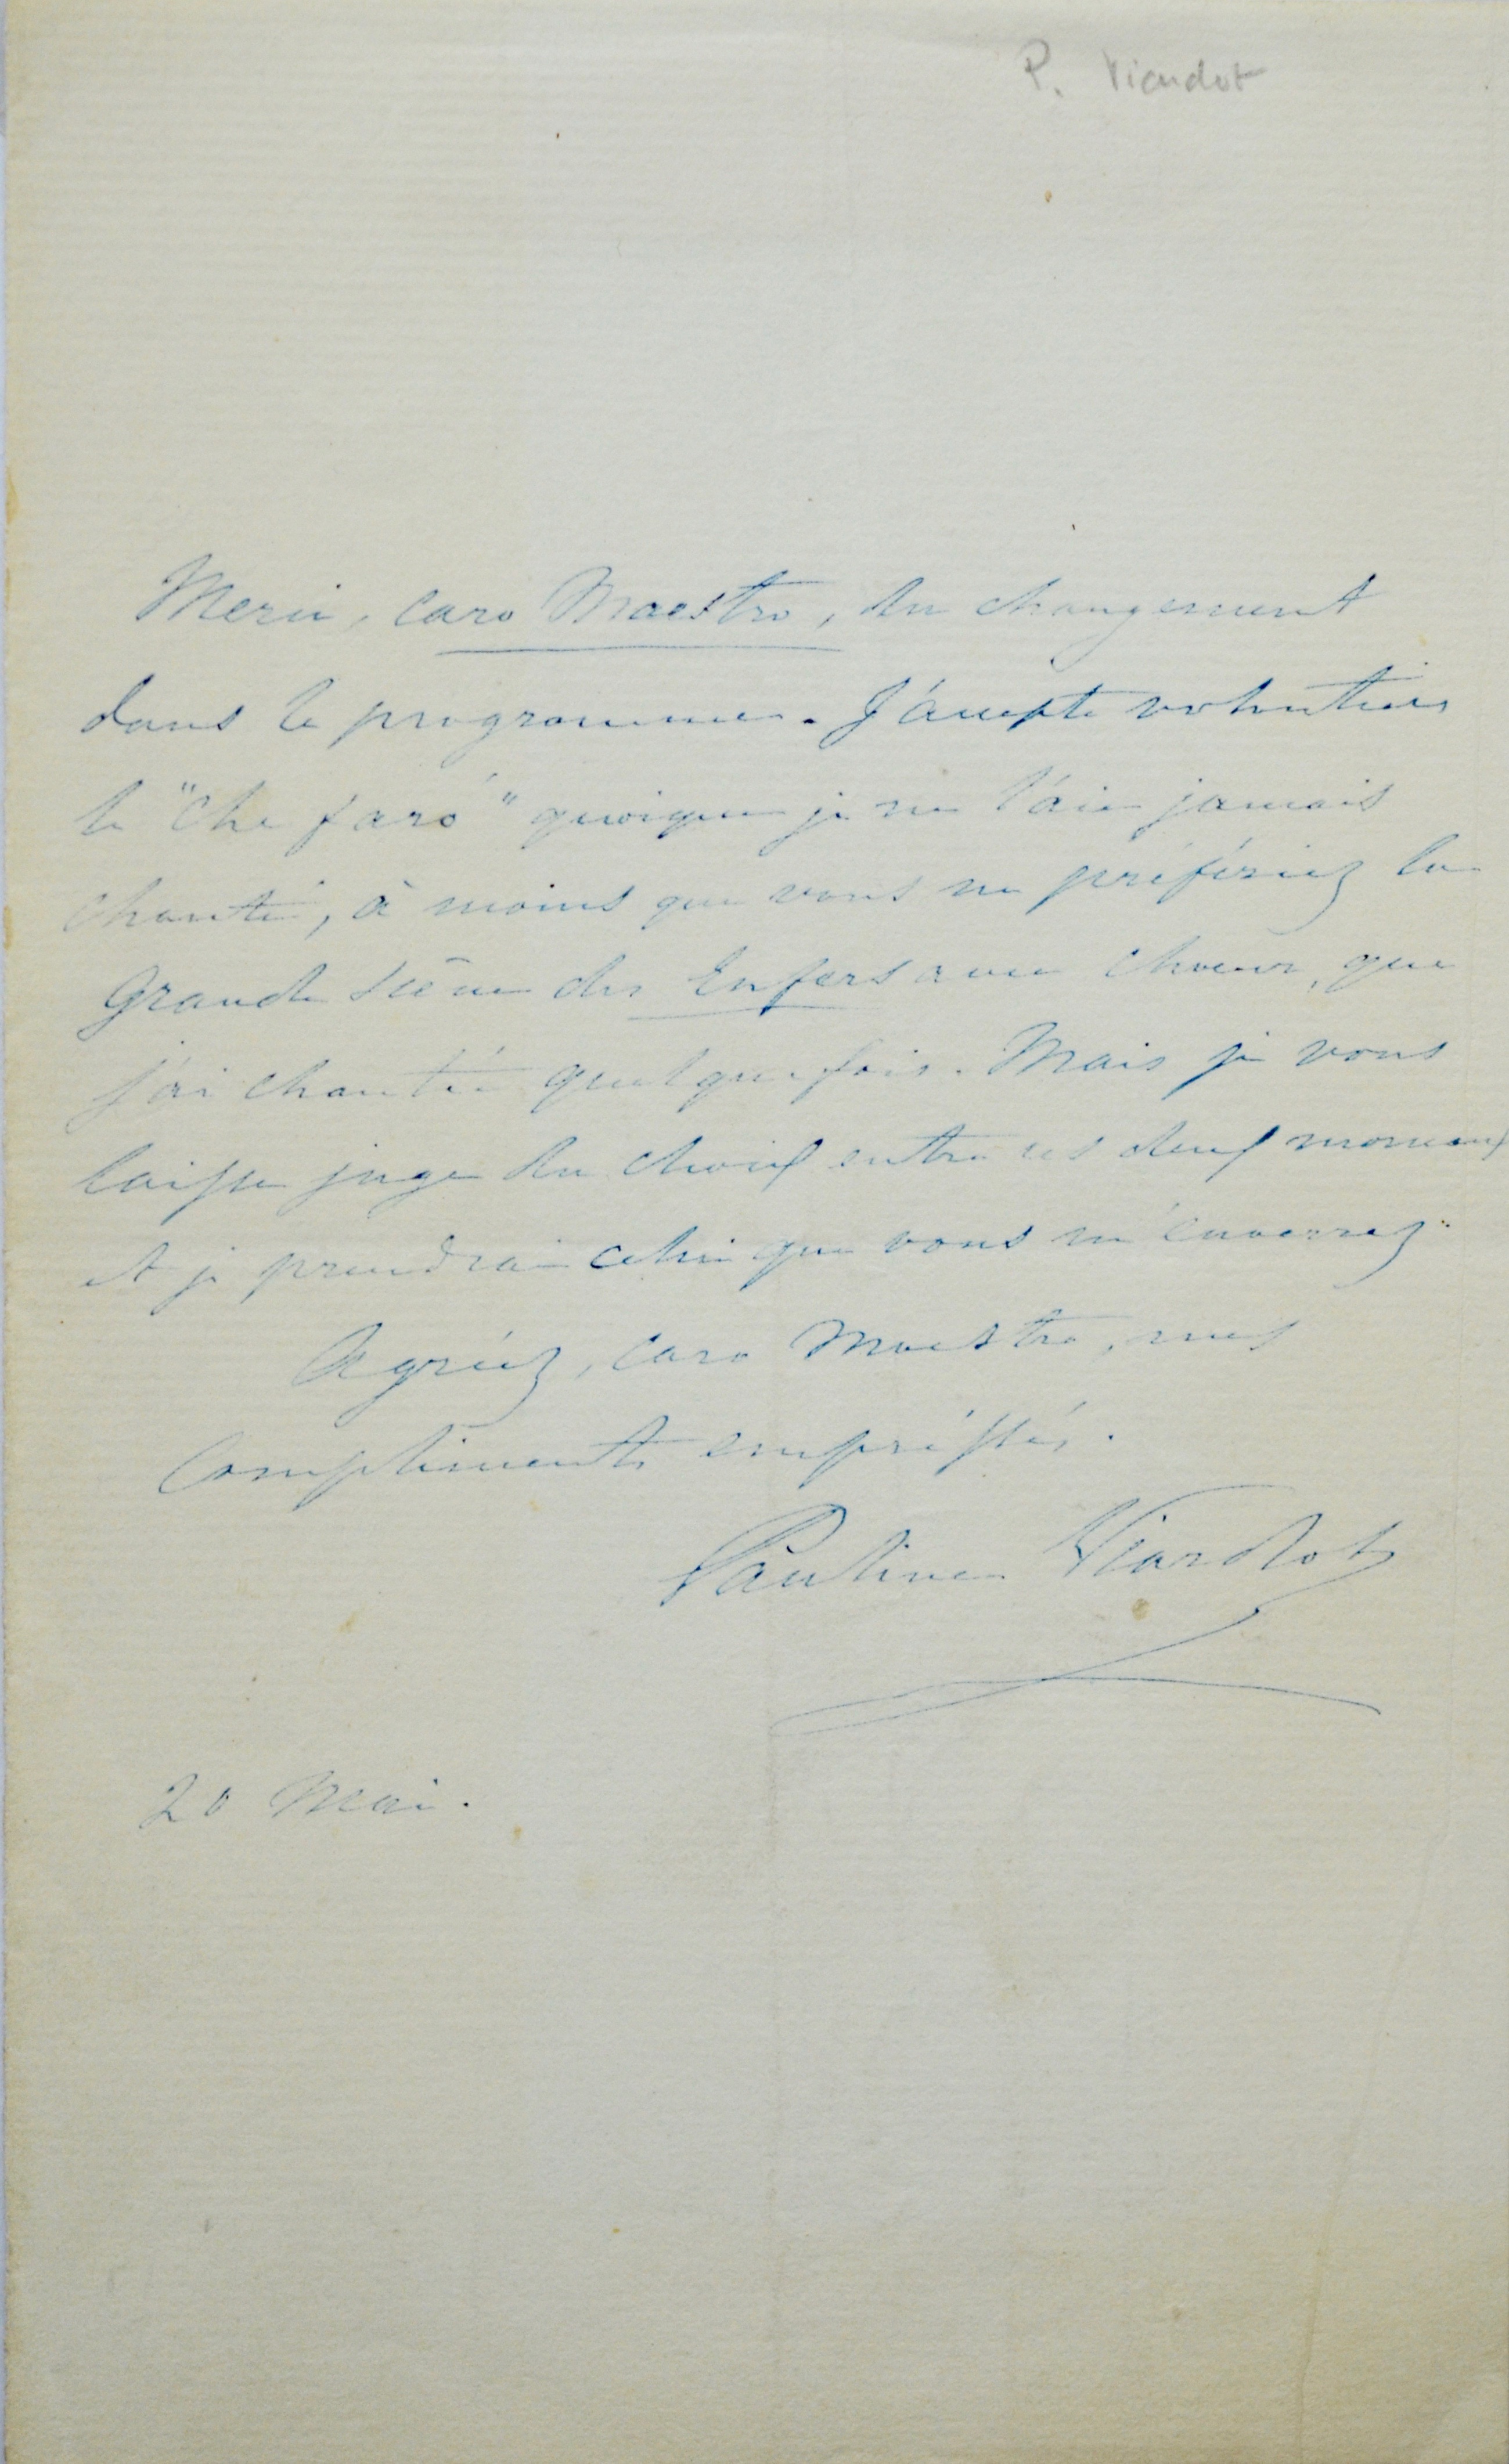 P. Viardot
Merci, caro Maestro, du changement
dans le programme. J'accepte volontiers
le "Che farò" quoique je ne l'aie jamais
chanté, à moins que vous ne préfériez la
grande scène des Enfers avec chœur, que
j'ai chantée quelquefois. Mais je vous
laisse juge du choix entre ces deux morceaux
et je prendrai celui que vous m'enverrez.
Agréez, caro Maestro, mes
compliments empressés.
Pauline Viardot
20 Mai.